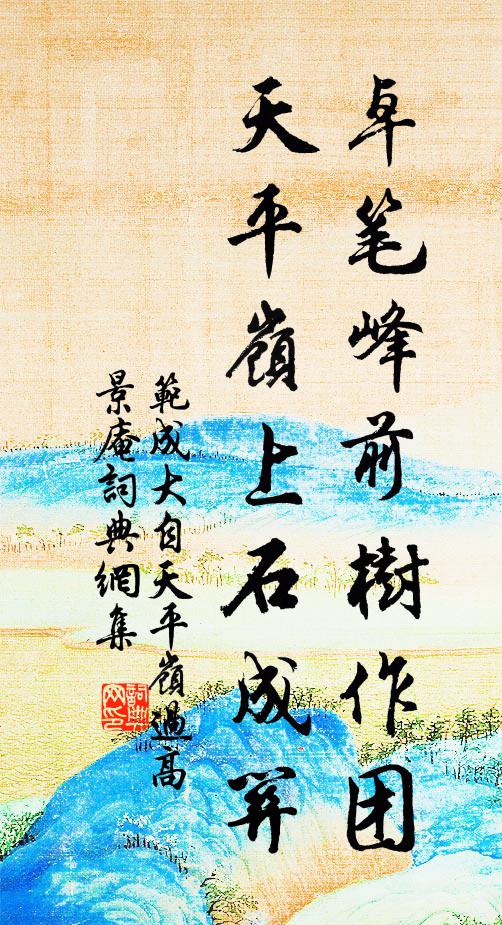 卓笔峰前樹作团
天平嶺上石成关
範成大自天平嶺過高
景庵詞典網集
詞典
网印